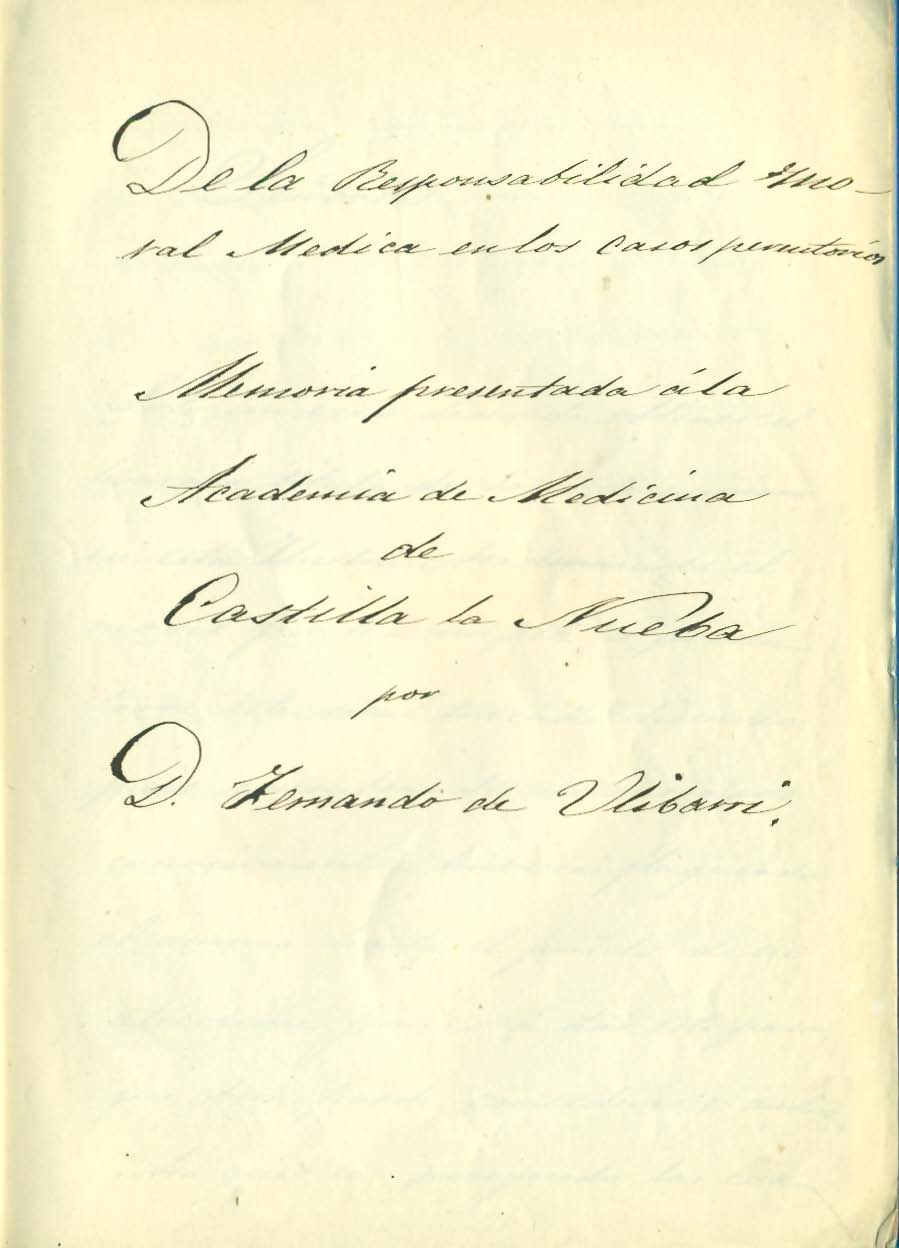 De la Responsabilidad mo-
ral Medica en los casos perentorios
Memoria presentada á la
Academia de Medicina
de
Castilla la Nueba
por
D. Fernando de Ulibarri.